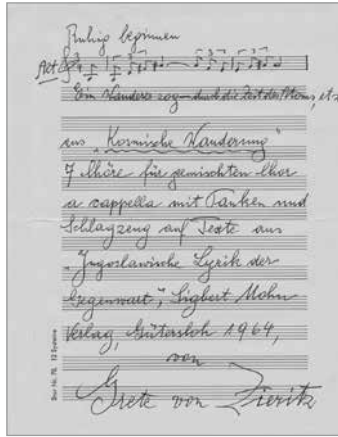 Ruhig beginnen
Alt
Ein Wanderer zog durch die Zeit des Atoms, etc
aus „Kosmische Wanderung"
7 Chöre für gemischten Chor
a cappella mit Pauken und
Schlagzeug auf Texte aus
„Jugoslawische Lyrik der
Gegenwart", Sigbert Mohn
Verlag, Gütersloh 1964,
von
Grete von Zieritz
Star Nr. 78, 12 Systeme